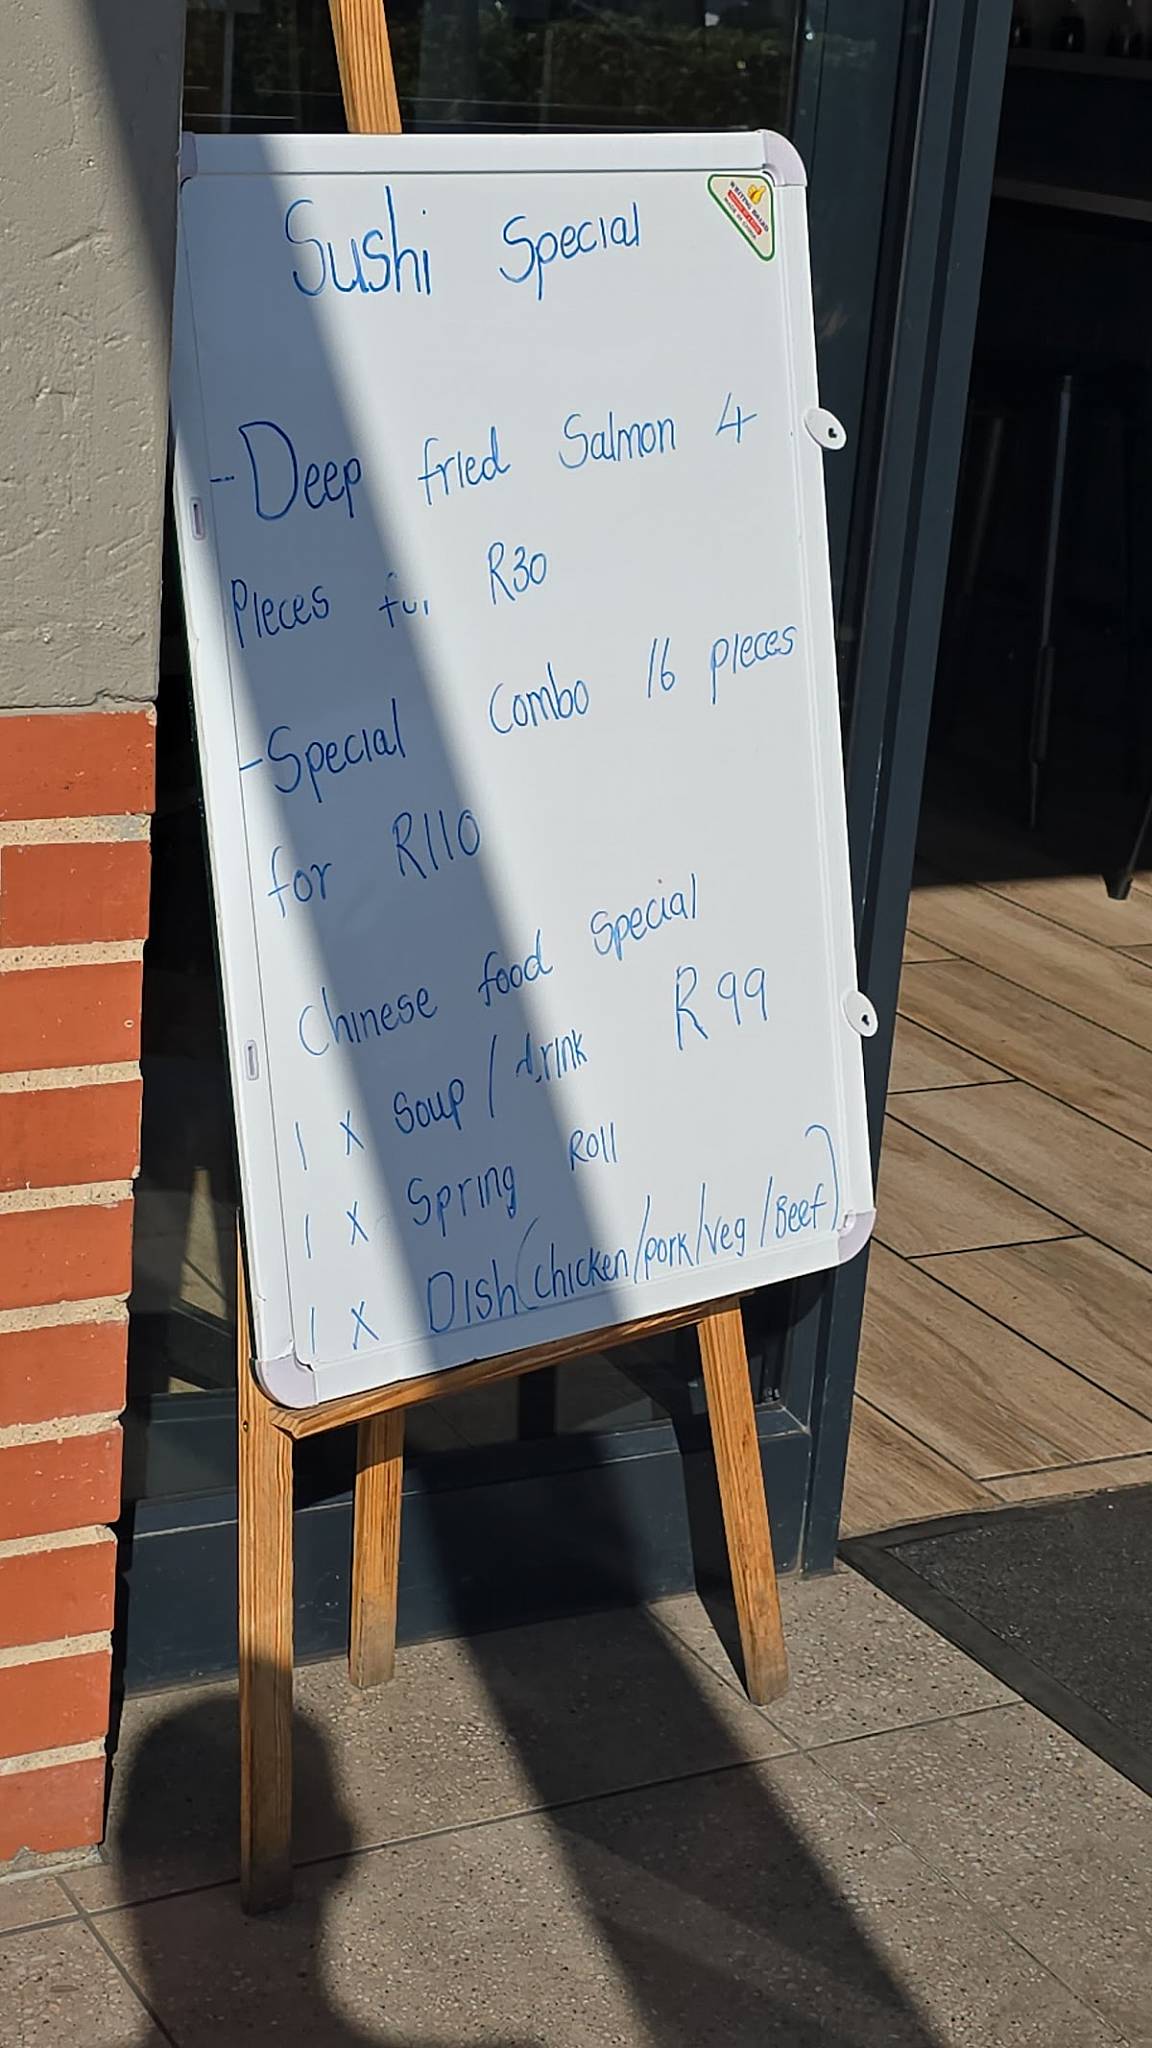 Sushi Special
WRITING BOARD
- Deep fried Salmon 4
Pieces for R30
- Special Combo 16 pieces
for R110
Chinese food Special
1 x Soup / drink R99
1 x Spring Roll
1 x Dish (chicken/pork/veg/Beef)